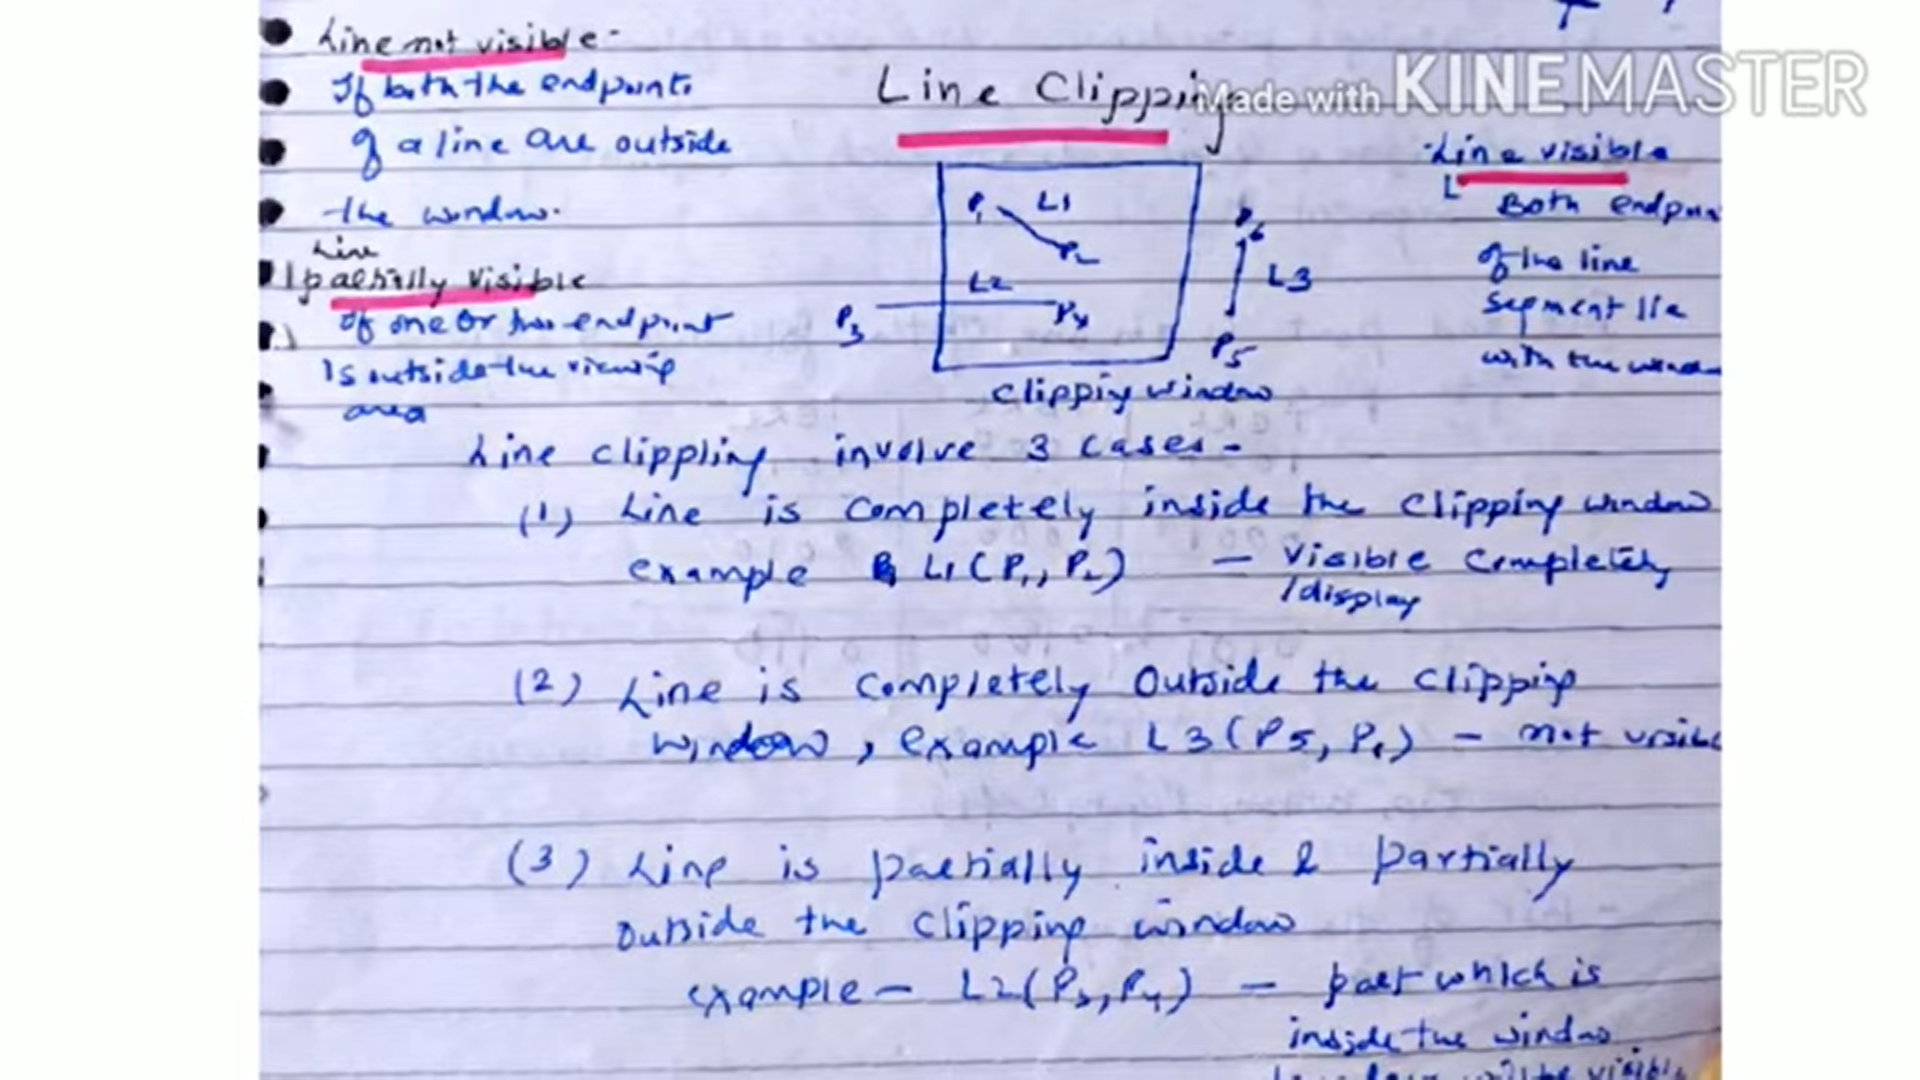 Line not visible-
If both the endpoints
of a line are outside
the window.
Line
partially visible
If one or two endpoint
is outside the viewing
area
Line Clipping
Made with KINEMASTER
P1 L1
P2
L2
P3 P4
P6
L3
P5
Clipping window
Line visible
Both endpoin
of the line
segment lie
with the windo
Line clippling involve 3 cases-
(1) Line is completely inside the clipping window
example L1(P1, P2) - visible completely
/display
(2) Line is completely outside the clipping
window, example L3(P5, P6) - not visibl
(3) Line is partially inside & partially
outside the clipping window
example- L2(P3, P4) - part which is
inside the window
will be visible